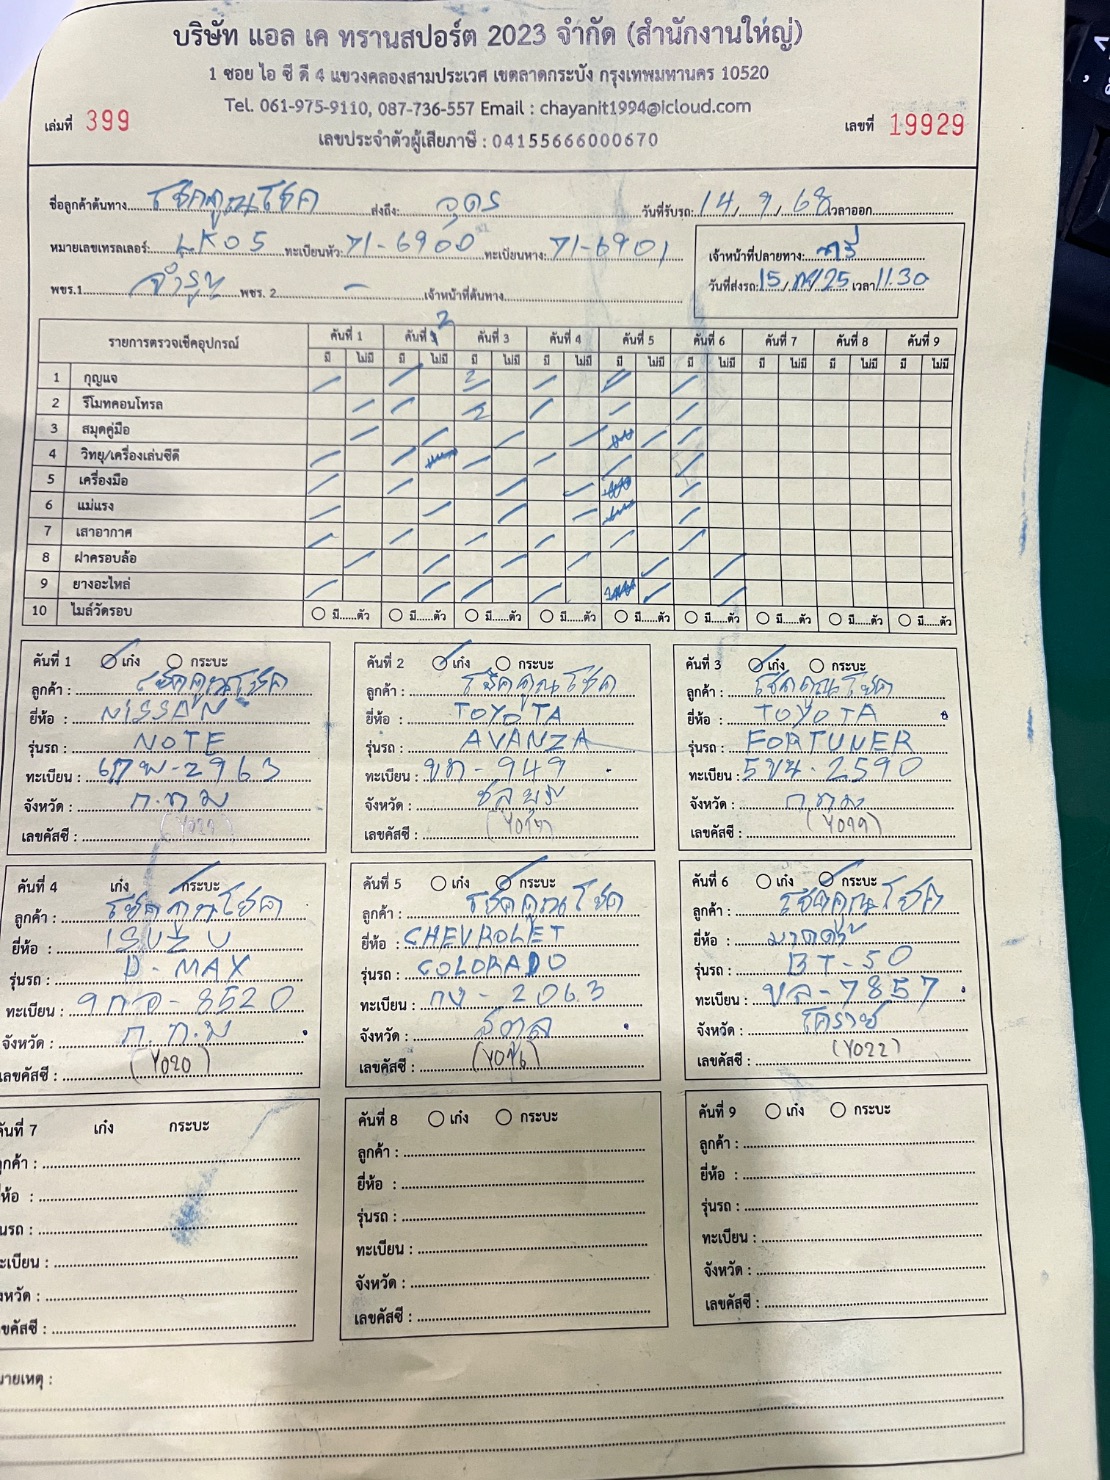 บริษัท แอล เค ทรานสปอร์ต 2023 จำกัด (สำนักงานใหญ่)
1 ซอย ไอ ซี ดี 4 แขวงคลองสามประเวศ เขตลาดกระบัง กรุงเทพมหานคร 10520
Tel. 061-975-9110, 087-736-557 Email : chayanit1994@lcloud.com
เล่มที่ 399 เลขที่ 19929
เลขประจำตัวผู้เสียภาษี : 04155666000670
ชื่อลูกค้าต้นทาง โชคคูณโชค ส่งถึง: อุดร วันที่รับรถ: 14, 9, 68 เวลาออก
หมายเลขเทรลเลอร์: LK05 ทะเบียนหัว: 71-6900 ทะเบียนหาง: 71-6901
เจ้าหน้าที่ปลายทาง:
พขร.1 จำรูญ พขร. 2 - เจ้าหน้าที่ต้นทาง
วันที่ส่งรถ: 15 / /25 เวลา 11.30
รายการตรวจเช็คอุปกรณ์ คันที่ 1 คันที่ 2 คันที่ 3 คันที่ 4 คันที่ 5 คันที่ 6 คันที่ 7 คันที่ 8 คันที่ 9
มี ไม่มี มี ไม่มี มี ไม่มี มี ไม่มี มี ไม่มี มี ไม่มี มี ไม่มี มี ไม่มี มี ไม่มี
1 กุญแจ 2
2 รีโมทคอนโทรล 2
3 สมุดคู่มือ
4 วิทยุ/เครื่องเล่นซีดี
5 เครื่องมือ
6 แม่แรง
7 เสาอากาศ
8 ฝาครอบล้อ
9 ยางอะไหล่
10 ไมล์วัดรอบ มี......ตัว มี......ตัว มี......ตัว มี......ตัว มี......ตัว มี......ตัว มี......ตัว มี......ตัว มี......ตัว
คันที่ 1 เก๋ง กระบะ
ลูกค้า : โชคคูณโชค
ยี่ห้อ : NISSAN
รุ่นรถ : NOTE
ทะเบียน : -2963
จังหวัด : ก.ท.ม
เลขคัสซี :
คันที่ 2 เก๋ง กระบะ
ลูกค้า : โชคคูณโชค
ยี่ห้อ : TOYOTA
รุ่นรถ : AVANZA
ทะเบียน : - 949
จังหวัด : ชลบุรี
เลขคัสซี :
คันที่ 3 เก๋ง กระบะ
ลูกค้า : โชคคูณโชค
ยี่ห้อ : TOYOTA
รุ่นรถ : FORTUNER
ทะเบียน : 5ขน-2590
จังหวัด : ก.ท.ม
เลขคัสซี :
คันที่ 4 เก๋ง กระบะ
ลูกค้า : โชคคูณโชค
ยี่ห้อ : ISUZU
รุ่นรถ : D-MAX
ทะเบียน : -8520
จังหวัด : ก.ท.ม
เลขคัสซี : (Y020)
คันที่ 5 เก๋ง กระบะ
ลูกค้า : โชคคูณโชค
ยี่ห้อ : CHEVROLET
รุ่นรถ : COLORADO
ทะเบียน : กง-2063
จังหวัด : สตูล
เลขคัสซี :
คันที่ 6 เก๋ง กระบะ
ลูกค้า : โชคคูณโชค
ยี่ห้อ : มาสด้า
รุ่นรถ : BT-50
ทะเบียน : -7857
จังหวัด : โคราช
เลขคัสซี : (Y022)
คันที่ 7 เก๋ง กระบะ
ลูกค้า :
ยี่ห้อ :
รุ่นรถ :
ทะเบียน :
จังหวัด :
เลขคัสซี :
คันที่ 8 เก๋ง กระบะ
ลูกค้า :
ยี่ห้อ :
รุ่นรถ :
ทะเบียน :
จังหวัด :
เลขคัสซี :
คันที่ 9 เก๋ง กระบะ
ลูกค้า :
ยี่ห้อ :
รุ่นรถ :
ทะเบียน :
จังหวัด :
เลขคัสซี :
หมายเหตุ :